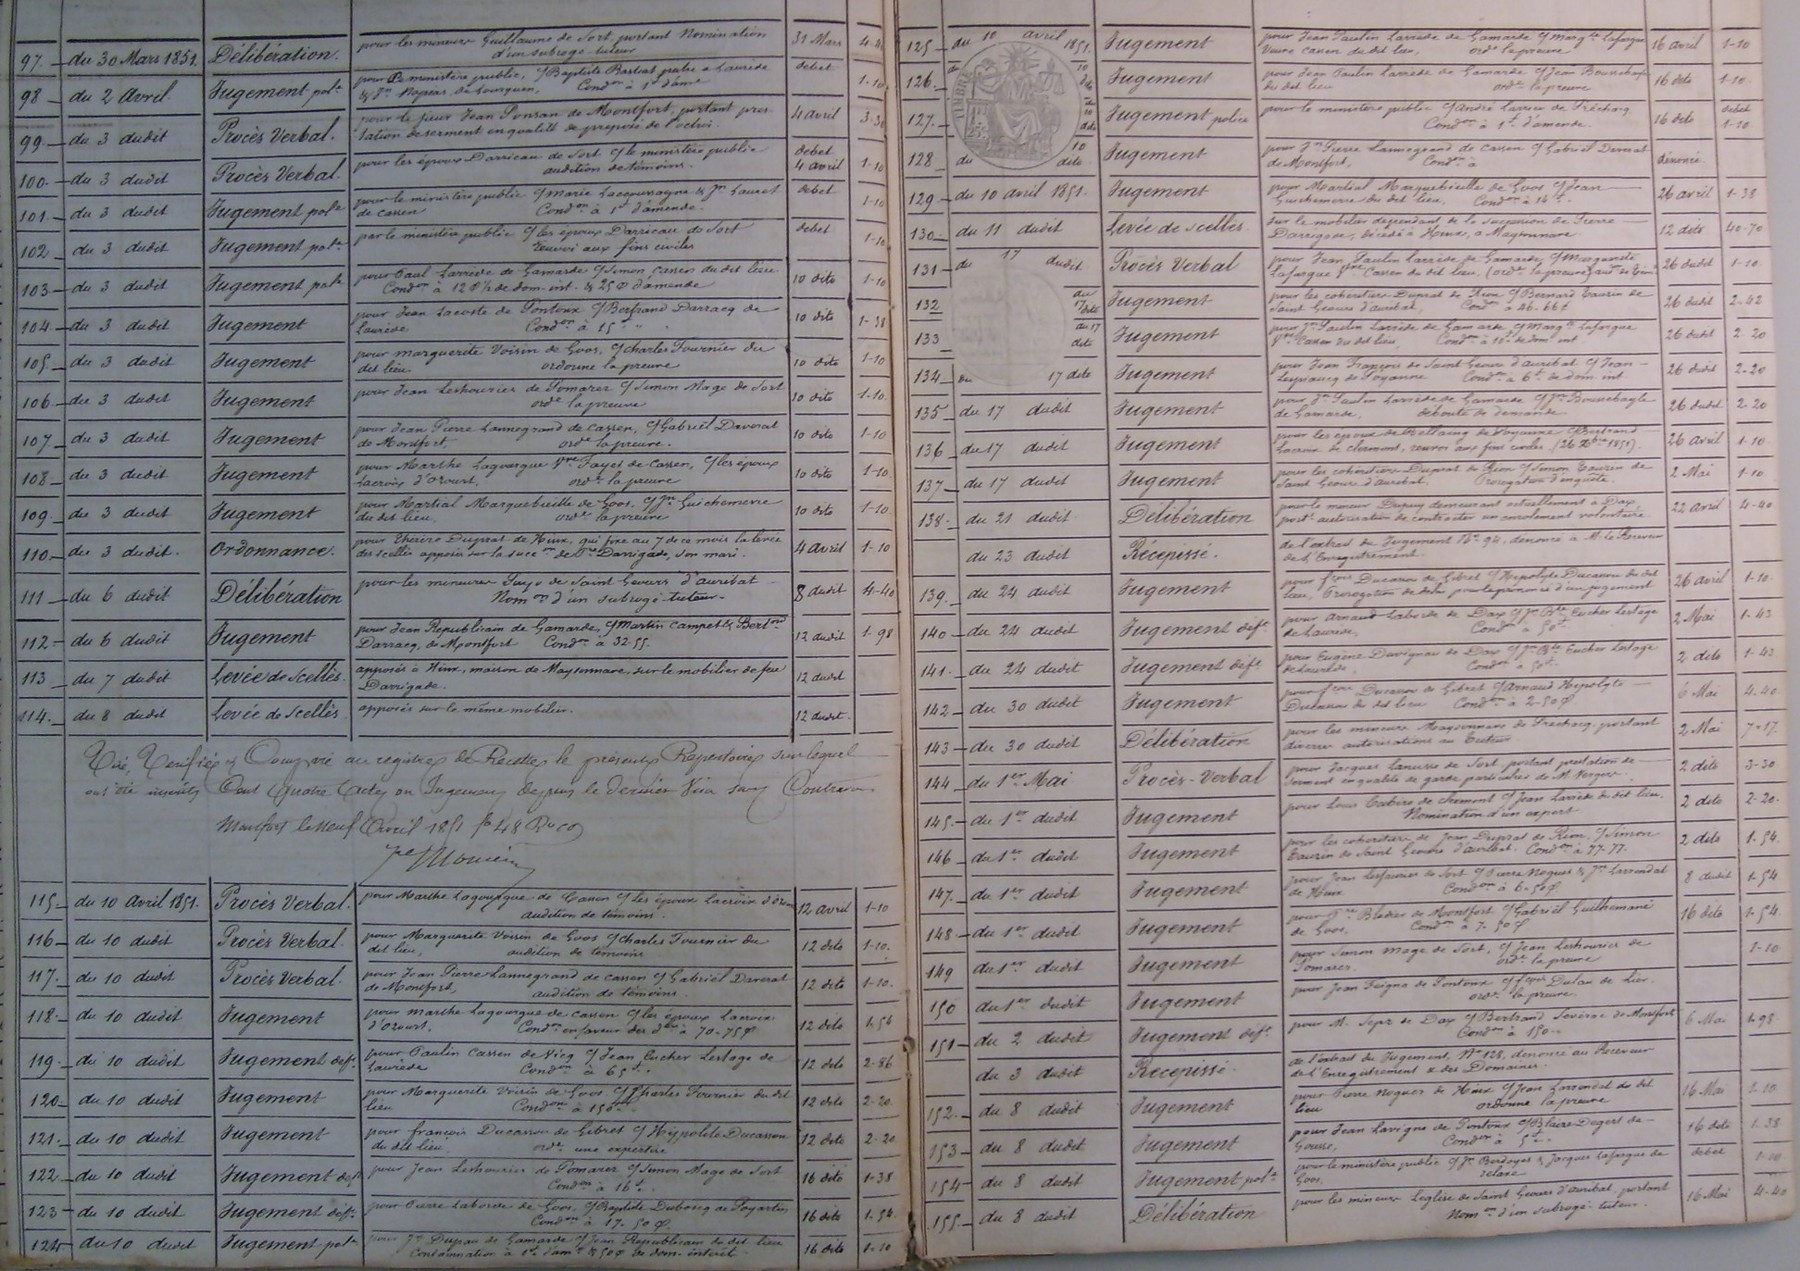 97. du 30 Mars 1851. Délibération. pour les mineurs Guillaume de Sort, portant Nomination 31 Mars
d'un subrogé tuteur
98 du 2 Avril Jugement pol.e pour le ministère public, c/ Baptiste Bastiat prêtre à Laurède debet 1-10
Cond.on à 1f d'ame
99 du 3 dudit Procès Verbal. pour le sieur Jean Ponsan de Montfort, portant pres 4 avril
tation de serment en qualité de préposé de l'octroi.
100 du 3 dudit Procès Verbal. pour les époux Darricau de Sort c/ le ministère public debet
audition de témoins. 4 avril 1-10
101 du 3 dudit Jugement pol.e pour le ministère public c/ Marie & Jn Lauret debet 1-10
de Cassen Cond.on à 1f d'amende.
102 du 3 dudit Jugement pol.e par le ministère public c/ les époux Darricau de Sort debet 1-10
renvoi aux fins civiles
103 du 3 dudit Jugement pol.e pour Paul Larrède de Gamarde c/ Simon Cassen du dit lieu 10 dito 1-10
Cond.on à 12 de dom. int. & 25 d'amende
104 du 3 dudit Jugement pour Jean Lacoste de Pontonx c/ Bertrand Darracq de 10 dito 1-38
Laurède Cond.on à 15
105 du 3 dudit Jugement pour Marguerite Voisin de Goos, c/ Charles Fournier du 10 dito 1-10
dit lieu ordonne la preuve
106 du 3 dudit Jugement pour Jean Leshourier de Pomarez c/ Simon Mage de Sort 10 dito 1-10
ord.e la preuve
107 du 3 dudit Jugement pour Jean Pierre Lannegrand de Cassen, c/ Gabriel Daverat 10 dito 1-10
de Montfort, ord.e la preuve.
108 du 3 dudit Jugement pour Marthe Lagourgue V.ve Fayet de Cassen, c/ les époux 10 dito 1-10
Lacroix d'Ozourt, ord.e la preuve
109 du 3 dudit Jugement pour Martial Marquebieille de Goos. c/ Jn Guichemerre 10 dito 1-10
du dit lieu, ord.e la preuve
110 du 3 dudit. Ordonnance. pour Thérèse Duprat de Hinx, qui fixe au 7 de ce mois la levée 4 avril 1-10
des scellés apposés sur la succ.on de Darrigade, son mari.
111 du 6 dudit Délibération pour les mineures de Saint Geours d'auribat 8 dudit 4-40
Nom.on d'un subrogé-tuteur
112 du 6 dudit Jugement pour Jean Republicain de Gamarde, c/ Martin Campet & Bert.nd 12 dudit 1-98
Darracq, de Montfort Cond.on à 32.55.
113 du 7 dudit Levée de Scellés. apposés à Hinx, maison de Maysonnave, sur le mobilier de feu 12 dudit
Darrigade.
114. du 8 dudit Levée de Scellés. apposés sur le même mobilier. 12 dudit.
Visé, Vérifié & Comparé au registre de Recette le présent Répertoire sur lequel
ont été inscrits Cent Quatre Actes ou Jugemens depuis le dernier Visa sans Contravon
Montfort le neuf Avril 1851
115 du 10 Avril 1851. Procès Verbal. pour Marthe Lagourgue de Cassen c/ les époux Lacroix d'Ozourt 12 avril 1-10
audition de témoins.
116 du 10 dudit Procès Verbal. pour Marguerite Voisin de Goos c/ Charles Fournier du 12 dito 1-10.
dit lieu, audition de témoins
117. du 10 dudit Procès Verbal. pour Jean Pierre Lannegrand de Cassen c/ Gabriel Daverat 12 dito 1-10.
de Montfort, audition de témoins.
118. du 10 dudit Jugement pour Marthe Lagourgue de Cassen c/ les époux Lacroix 12 dito 1-54
d'Ozourt. Cond.on en faveur des à 70-75
119. du 10 dudit Jugement déf.t pour Paulin Cassen de Vicq c/ Jean Eucher Lestage de 12 dito 2-86
Laurède Cond.on à 65f.
120 du 10 dudit Jugement pour Marguerite Voisin de Goos c/ Charles Fournier du dit 12 dito 2-20
lieu Cond.on à 150
121. du 10 dudit Jugement pour François Ducassou de Gibret c/ Hippolite Ducassou 12 dito 2-20
du dit lieu, ord.e une expertise
122. du 10 dudit Jugement déf.t pour Jean Leshourier de Pomarez c/ Simon Mage de Sort 16 dito 1-38
Cond.on à 16f.
123 du 10 dudit Jugement déf.t pour Pierre Laborde de Goos. c/ Baptiste Duboscq de Poyartin 16 dito 1-54
Cond.on à 17-50
124 du 10 dudit Jugement pol.e pour Jn Dupau de Gamarde c/ Jean Republicain du dit lieu 16 dito 1-10
Condamnation à 1f d'am. & 50 de dom-intérêt.
125 du 10 avril 1851. Jugement pour Jean Paulin Larrède de Gamarde c/ Marg.te Lafargue 16 avril 1-10
Veuve Cassen du dit lieu, ord.e la preuve
126. du 10 dito Jugement pour Jean Paulin Larrède de Gamarde c/ Jean 16 dito 1-10.
du dit lieu ord.e la preuve
TIMBRE
127. du 10 dito Jugement police pour le ministère public c/ André Larrieu de Préchacq 16 dito debet
Cond.on à 1f. d'amende. 1-10
128 du 10 dito Jugement pour Jn Pierre Lannegrand de Cassen c/ Gabriel Daverat dénoncé.
de Montfort. Cond.on à
129 du 10 avril 1851. Jugement pour Martial Marquebieille de Goos c/ Jean 26 avril 1-38
Guichemerre du dit lieu, Cond.on à 14f.
130 du 11 dudit Levée de scellés. sur le mobilier dépendant de la succession de Pierre 12 dito 40-70
Darrigade, décédé à Hinx, à Maysonnave.
131 du 17 dudit. Procès Verbal pour Jean Paulin Larrède de Gamarde, c/ Marguerite 26 dudit 1-10.
Lafargue V.ve Cassen du dit lieu.
132 du 17 dito Jugement pour les cohéritiers Duprat de Rion c/ Bernard Taurin de 26 dudit 2-42
Saint Geours d'auribat, Cond.on à 46.66
133 du 17 dito Jugement pour Jn Paulin Larrède de Gamarde c/ Marg.te Lafargue 26 dudit 2-20
V.ve Cassen du dit lieu, Cond.on à de dom int.
134 du 17 dito Jugement pour Jean François de Saint Geours d'auribat c/ Jean 26 dudit 2-20
Lesparcq de Poyanne Cond.on à 6f de dom int
135 du 17 dudit Jugement pour Jn Paulin Larrède de Gamarde c/ Jn 26 dudit 2-20
de Gamarde, déboute de demande
136 du 17 dudit Jugement pour les époux de Bellaing de Poyanne c/ Bertrand 26 avril 1-10
Lacroix de Clermont, renvoi aux fins civiles
137 du 17 dudit Jugement pour les cohéritiers Duprat de Rion c/ Simon Taurin de 2 Mai 1-10
Saint Geours d'auribat. Prorogation d'enquête.
138. du 21 dudit Délibération pour le mineur Dupuy demeurant actuellement à Dax 22 avril 4-40
port.t autorisation de contracter un enrolement volontaire
du 23 dudit Récépissé. de l'extrait du Jugement N° 94, dénoncé à M. le Receveur
de l'Enregistrement.
139. du 24 dudit Jugement pour f.çois Ducassou de Gibret c/ Hippolyte Ducassou du dit 26 avril 1-10.
lieu, Prorogation de délai pour la prononcé d'un jugement
140 du 24 dudit Jugement déf.t pour Arnaud Laborde de Dax c/ Jn B.te Eucher Lestage 2 Mai 1-43
de Laurède, Cond.on à 50f
141. du 24 dudit Jugement déf.t pour Eugène Duvignau de Dax c/ Jn B.te Eucher Lestage 2 dito 1-43
de Laurède. Cond.on à 50f.
142 du 30 dudit Jugement pour f.çois Ducassou de Gibret c/ Arnaud Hippolyte 6 Mai 4-40.
Ducassou du dit lieu Cond.on à 2-50
143 du 30 dudit Délibération pour les mineurs Maysonnave de Préchacq, portant 2 Mai 7-17.
diverses autorisations au Tuteur.
144 du 1er Mai Procès-Verbal pour Jacques Lanusse de Sort, portant prestation de 2 dito 3-30
serment en qualité de garde particulier de M.
145 du 1er dudit Jugement pour Louis de Clermont c/ Jean Larrède du dit lieu, 2 dito 2-20.
Nomination d'un expert
146 du 1er dudit Jugement pour les cohéritiers de Jean Duprat de Rion, c/ Simon 2 dito 1-54.
Taurin de Saint Geours d'auribat. Cond.on à 77-77.
147. du 1er dudit Jugement pour Jean de Sort c/ Pierre Nogues & Jn Larrondat 8 dudit 1-54
de Hinx Cond.on à 6-50
148 du 1er dudit Jugement pour de Montfort c/ Gabriel Guilhemané 16 dito 1-54.
de Goos, Cond.on à 7-50
149 du 1er dudit Jugement pour Simon Mage de Sort, c/ Jean Leshourier de 1-10
Pomarez. ord.e la preuve
150 du 1er dudit Jugement pour Jean de Pontonx c/ f.çois Dulau de Lier.
ord.e la preuve.
151 du 2 dudit Jugement déf.t pour M. de Dax c/ Bertrand de Montfort 6 Mai 1-98.
Cond.on à 150
du 3 dudit Récépissé. de l'extrait du Jugement, N° 128, dénoncé au Receveur
de l'Enregistrement & des Domaines.
152. du 8 dudit Jugement pour Pierre Nogues de Hinx c/ Jean Larrondat du dit 16 Mai 1-10
lieu ordonne la preuve
153 du 8 dudit Jugement pour Jean Lavigne de Pontonx c/ Blaise Degert de 16 dito 1-38
Gousse. Cond.on à
154 du 8 dudit Jugement pol.e pour le ministère public c/ Jn & Jacques Lafargue de debet 1-10
Goos, relaxe
155. du 8 dudit Délibération pour les mineurs Leglise de Saint Geours d'auribat, portant 16 Mai 4-40
Nom.on d'un subrogé tuteur